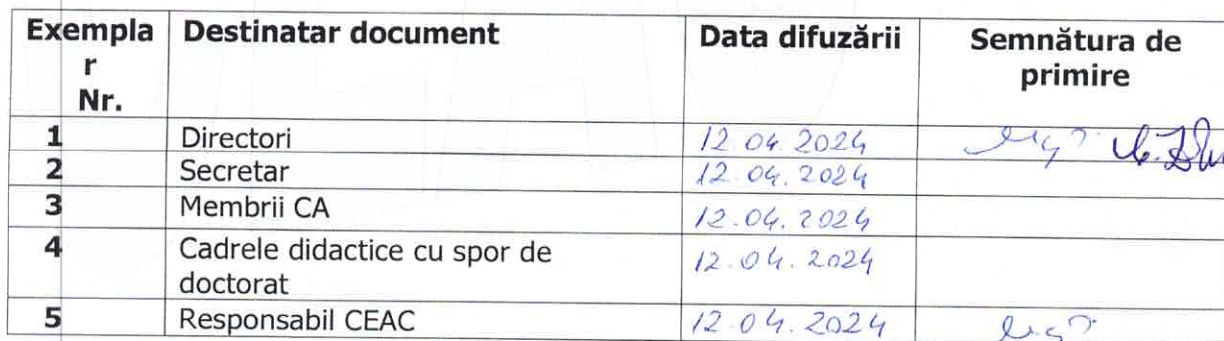 Exempla Destinatar document Data difuzării Semnătura de
r primire
Nr.
1 Directori 12.04.2024
2 Secretar 12.04.2024
3 Membrii CA 12.04.2024
4 Cadrele didactice cu spor de 12.04.2024
doctorat
5 Responsabil CEAC 12.04.2024